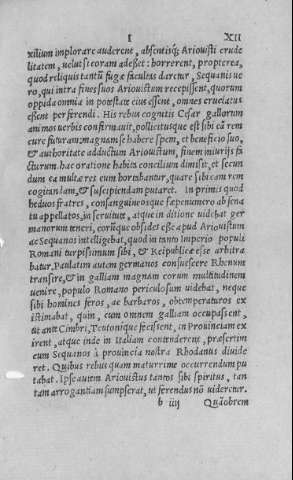 I XII
xilium implorare auderent, absentisq; Ariouisti crude
litatem, uelut si coram adesset: horrerent, propterea,
quod reliquis tantū fugæ facultas daretur, Sequanis ue
ro, qui intra fines suos Ariouistum recepissent, quorum
oppida omnia in potestate eius essent, omnes cruciatus
essent perferendi. His rebus cognitis Cæsar gallorum
animos uerbis confirmauit, pollicitusque est sibi eā rem
curæ futuram: magnam se habere spem, et beneficio suo,
& authoritate adductum Ariouistum, finem iniurijs fa
cturum. hac oratione habita concilium dimisit, et secun
dum ea multæ res eum hortabantur, quare sibi eam rem
cogitandam, & suscipiendam putaret. In primis quod
heduos fratres, consanguineosque sæpenumero ab sena
tu appellatos, in seruitute, atque in ditione uidebat ger
manorum teneri, eorūque obsides esse apud Ariouistum
ac Sequanos intelligebat, quod in tanto Imperio populi
Romani turpissimum sibi, & Reipublicæ esse arbitra
batur. Paulatim autem germanos consuescere Rhenum
transire, & in galliam magnam eorum multitudinem
uenire, populo Romano periculosum uidebat, neque
sibi homines feros, ac barbaros, obtemperaturos ex
istimabat, quin, cum omnem galliam occupassent,
ut ante Cimbri, Teutonique fecissent, in Prouinciam ex
irent, atque inde in Italiam contenderent, præsertim
cum Sequanos à prouincia nostra Rhodanus diuide
ret. Quibus rebus quam maturrime occurrendum pu
tabat. Ipse autem Ariouistus tantos sibi spiritus, tan
tam arrogantiam sumpserat, ut ferendus nō uideretur.
b iiij Quāobrem